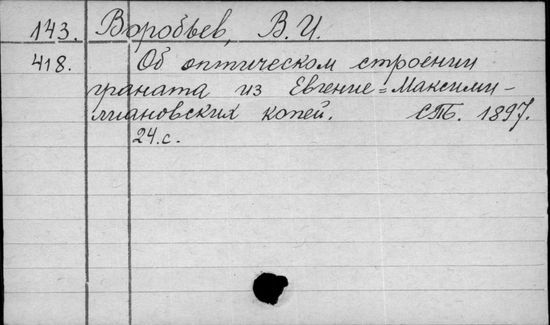 143. Воробьев, В.И.
418. Об оптическом строении
граната из Евгение=Максими-
лиановских копей. СПб. 1897.
24.с.